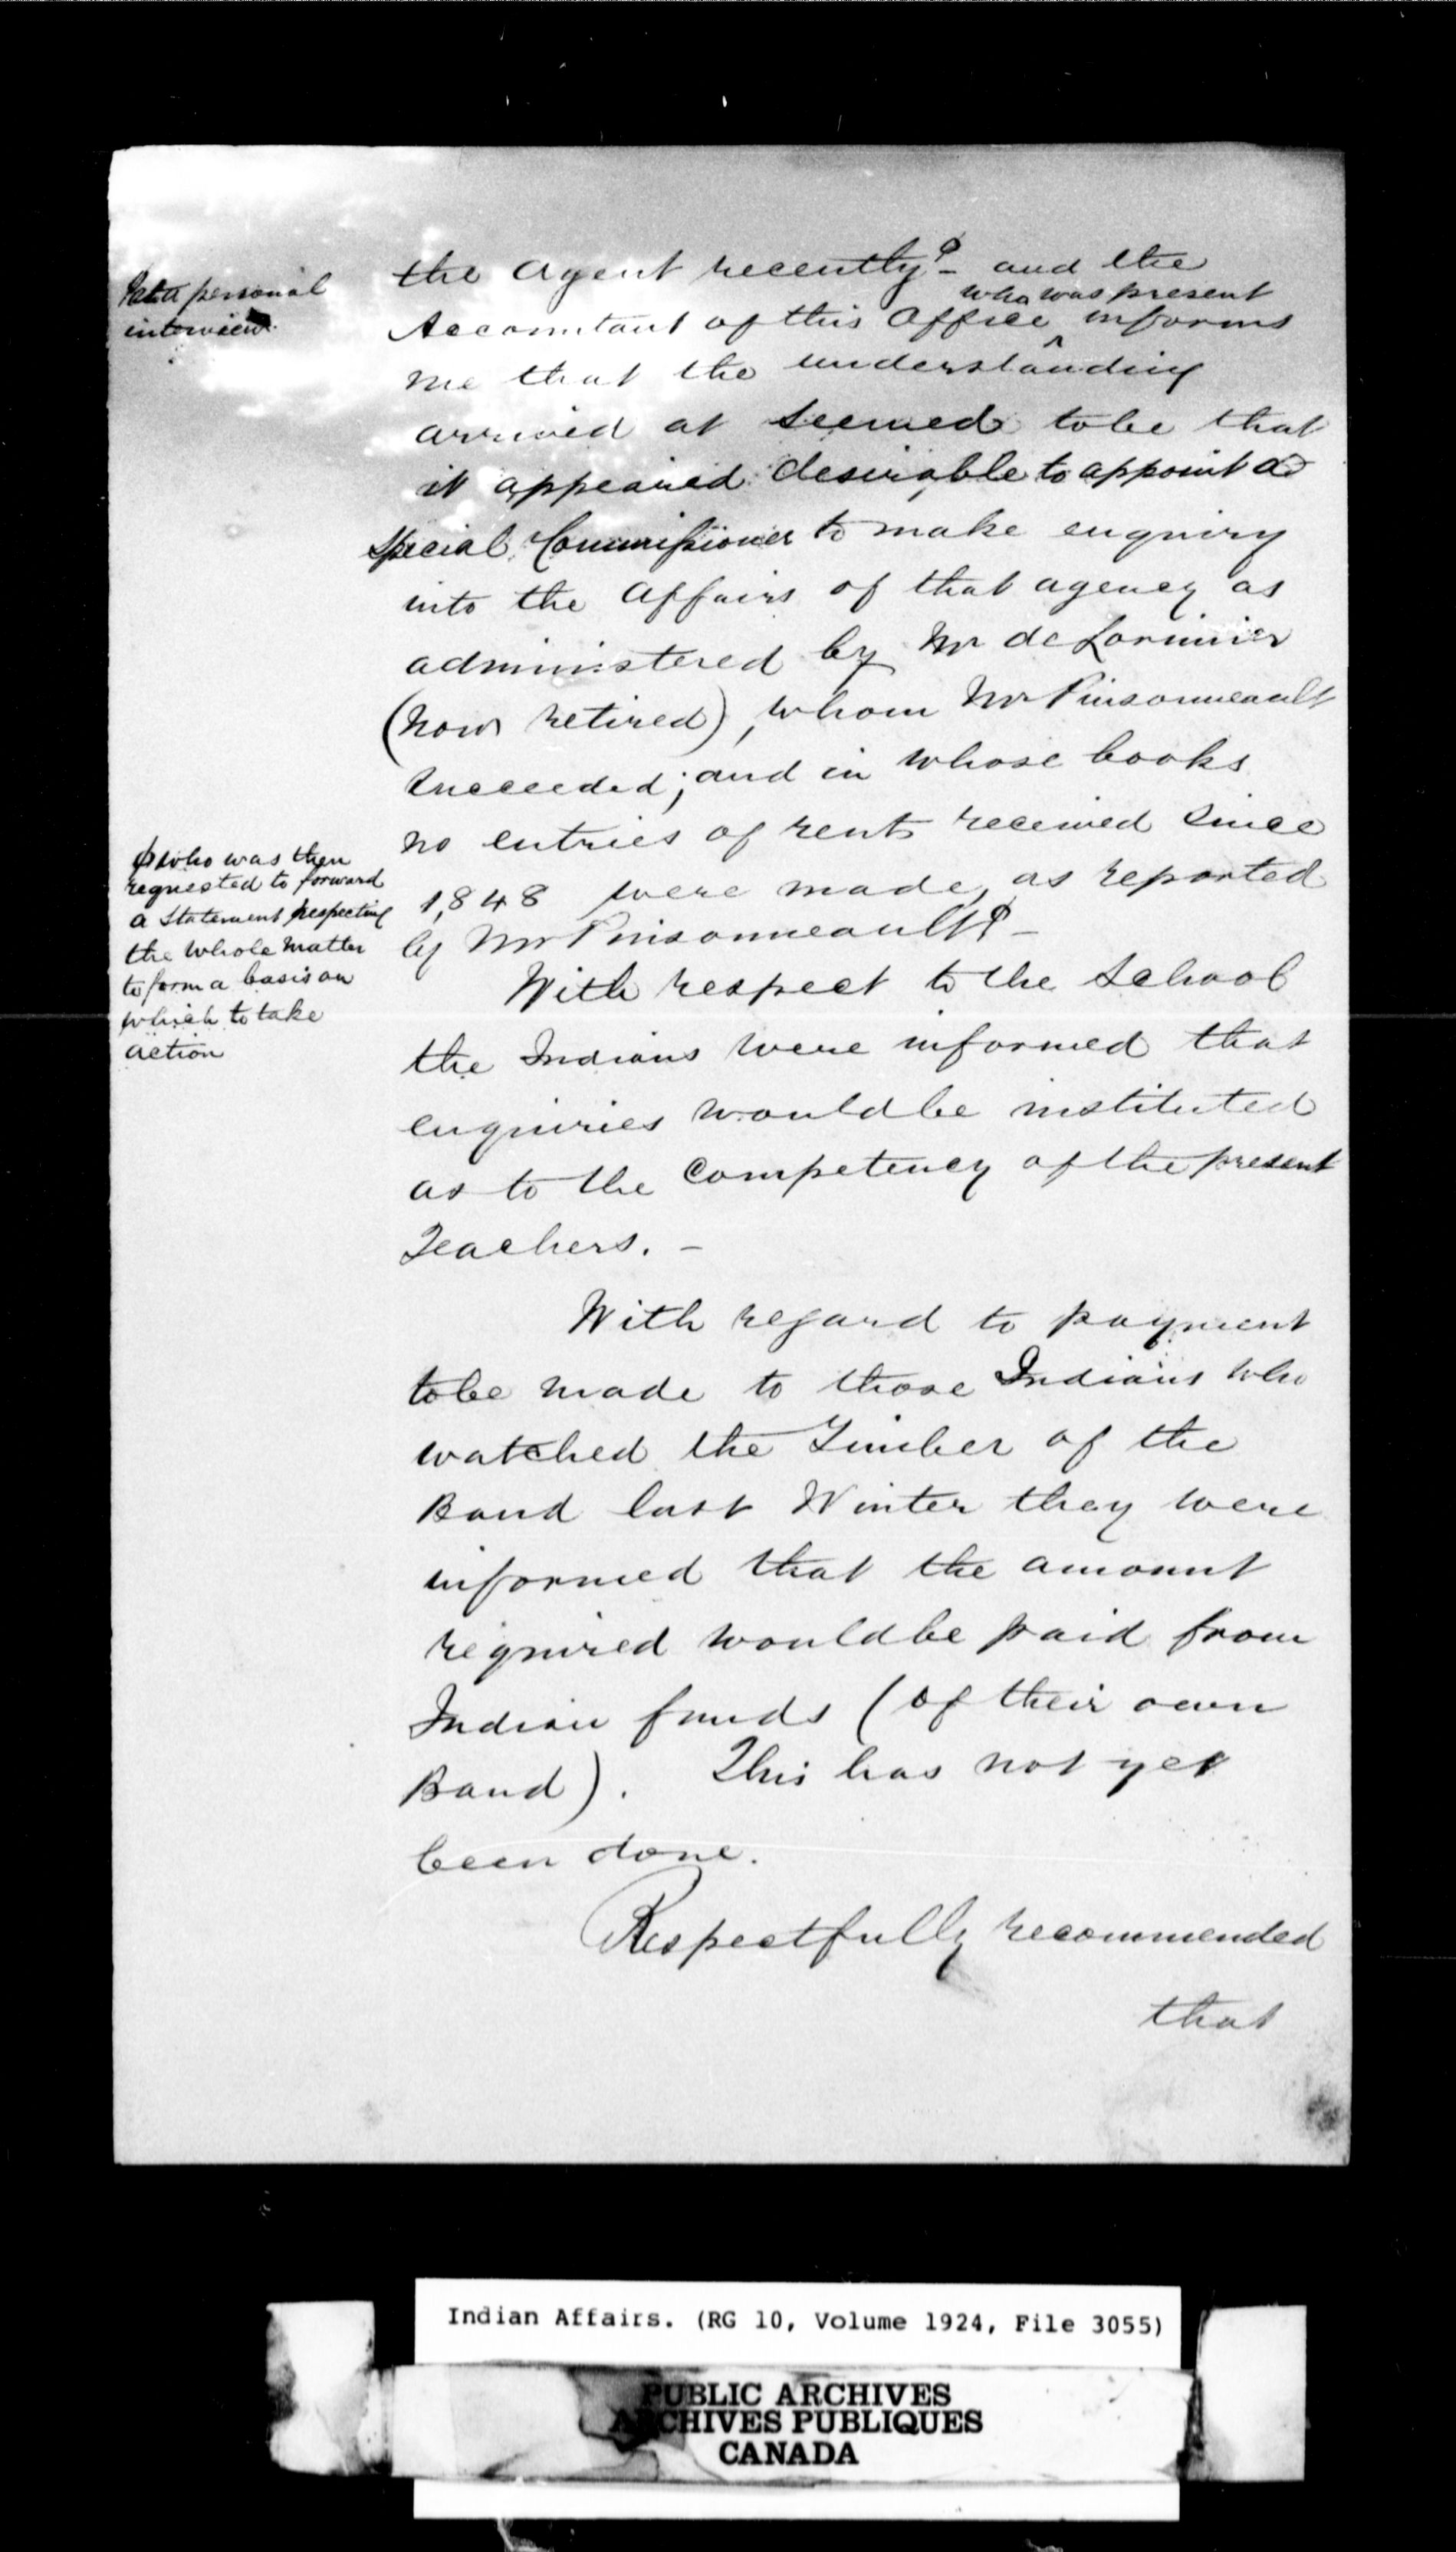 at a personal
interview
the Agent recently φ – and the
who was present
Accountant of this Office ^ informs
me that the understanding
arrived at seemed to be that
it appeared desirable to appoint a
Special Commissioner to make enquiry
into the affairs of that agency as
administered by Mr de Lorimier
(now retired), whom Mr Pinsonneault
succeeded; and in whose books
no entries of rents received since
1848 were made, as reported
by Mr Pinsonneault φ –
φ who was then
requested to forward
a Statement respecting
the whole matter
to form a basis on
which to take
action
With respect to the School
the Indians were informed that
enquiries would be instituted
as to the Competency of the present
Teachers. –
With regard to payment
to be made to those Indians who
watched the Timber of the
Band last Winter they were
informed that the amount
required would be paid from
Indian funds (of their own
Band). This has not yet
been done.
Respectfully recommended
that
Indian Affairs. (RG 10, Volume 1924, File 3055)
PUBLIC ARCHIVES
ARCHIVES PUBLIQUES
CANADA